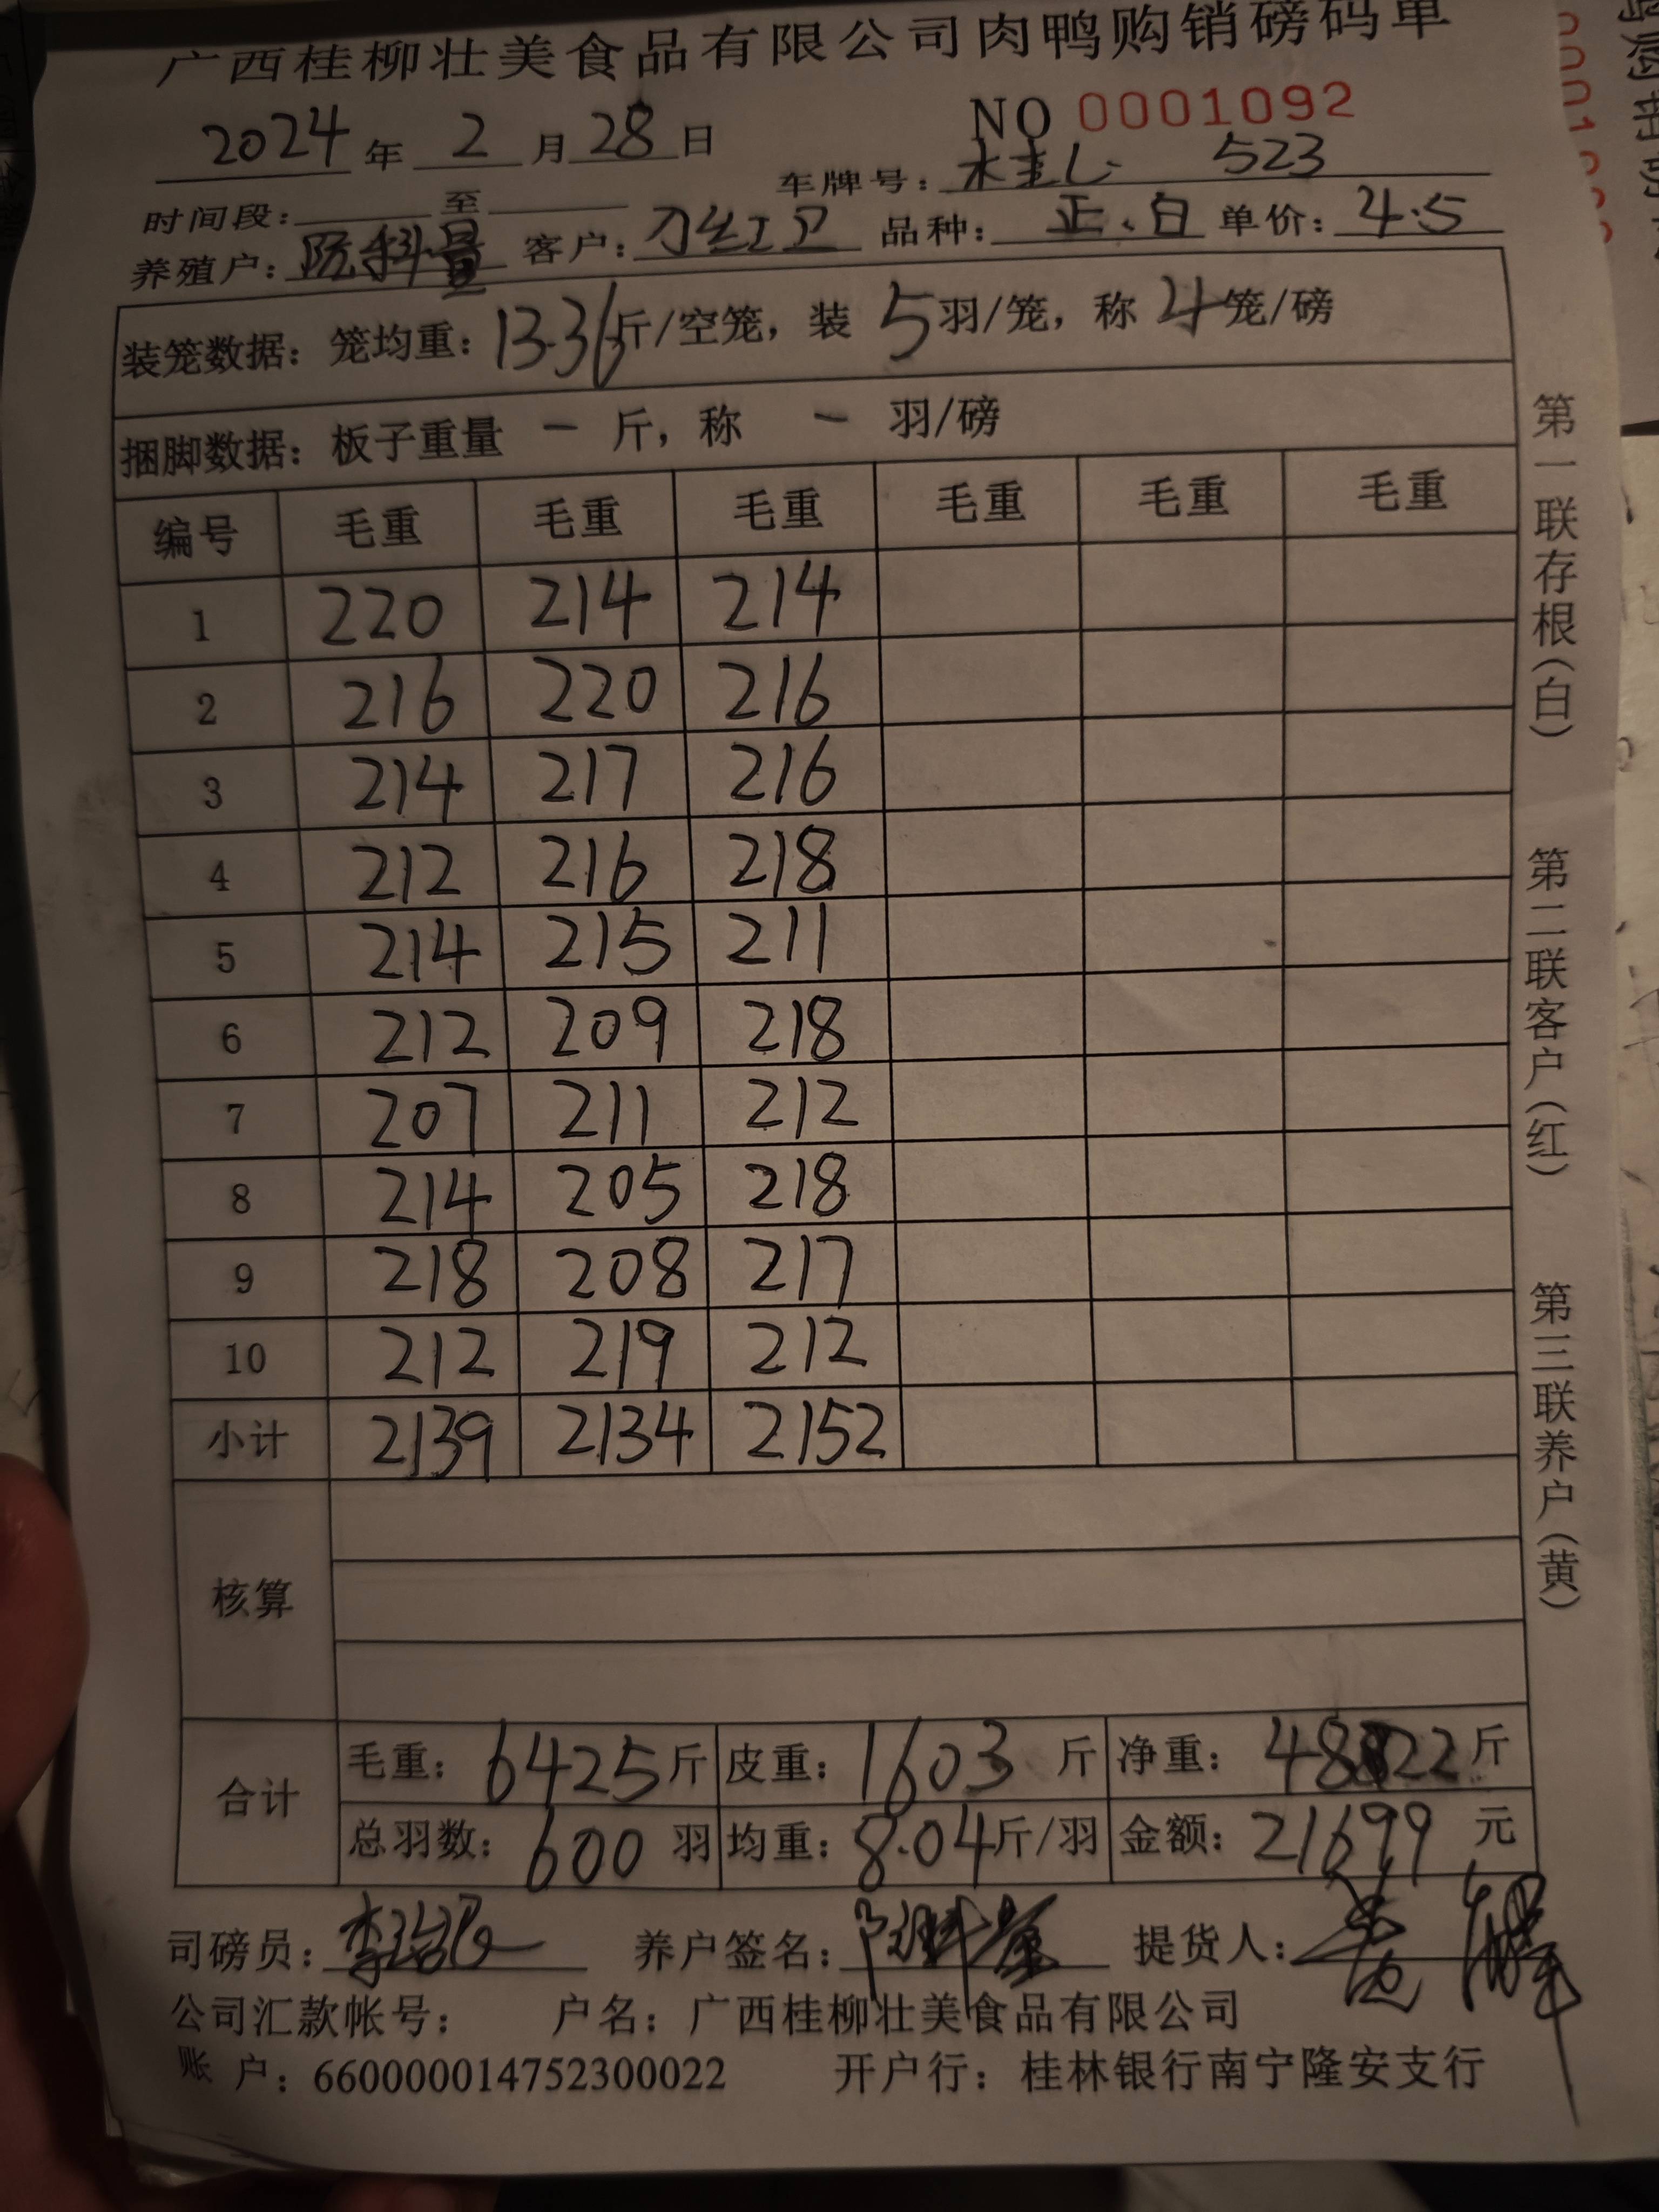 广西桂柳壮美食品有限公司肉鸭购销磅码单
2024 年 2 月 28 日 NO 0001092
车牌号: 桂L 523
时间段: 至
养殖户: 客户: 刁红卫 品种: 正、白 单价: 4.5
装笼数据: 笼均重: 13.36 斤/空笼, 装 5 羽/笼, 称 4 笼/磅
捆脚数据: 板子重量 — 斤, 称 — 羽/磅
编号 毛重 毛重 毛重 毛重 毛重 毛重
1 220 214 214
2 216 220 216
3 214 217 216
4 212 216 218
5 214 215 211
6 212 209 218
7 207 211 212
8 214 205 218
9 218 208 217
10 212 219 212
小计 2139 2134 2152
核算
合计
毛重: 6425 斤 皮重: 1603 斤 净重: 4822 斤
总羽数: 600 羽 均重: 8.04 斤/羽 金额: 21699 元
司磅员: 养户签名: 提货人:
公司汇款帐号: 户名: 广西桂柳壮美食品有限公司
账 户: 660000014752300022 开户行: 桂林银行南宁隆安支行
第一联存根(白)
第二联客户(红)
第三联养户(黄)